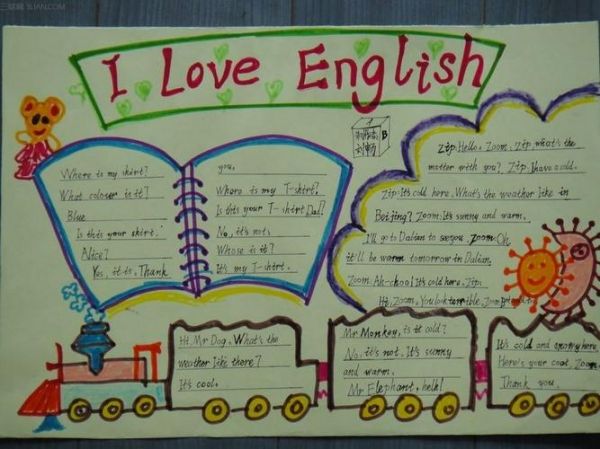 I Love English
Where is my skirt?
What colour is it?
Blue
Is this your skirt.
Alice?
Yes, it is. Thank
you.
Where is my T-shirt?
Is this your T-shirt Dad?
No, it's not.
Whose is it?
It's my T-shirt.
B
Zip: Hello. Zoom. Zip what's the
matter with you? Zip. I have a cold.
Zip: It's cold here. What's the weather like in
Beijing? Zoom: It's sunny and warm.
I'll go to Dalian to see you. Zoom Oh
it'll be warm tomorrow in Dalian.
Zoom: Ah-choo! It's cold here. Zip.
Hi, Zoom. You look terrible.
Hi, Mr Dog. What's the
weather like there?
It's cool.
Mr Monkey, is it cold?
No, it's not. It's sunny
and warm.
Mr Elephant, hello!
It's cold and snowy here
Here's your coat, Zoom.
Thank you.